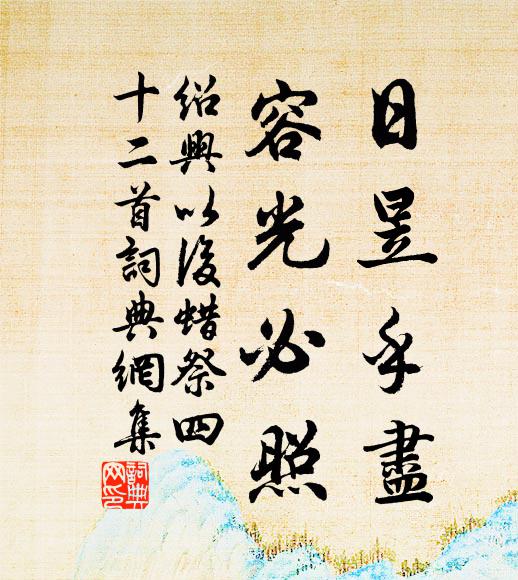 日昱乎盡
容光必照
紹興以後蜡祭四
十二首詞典網集
詞典
网印